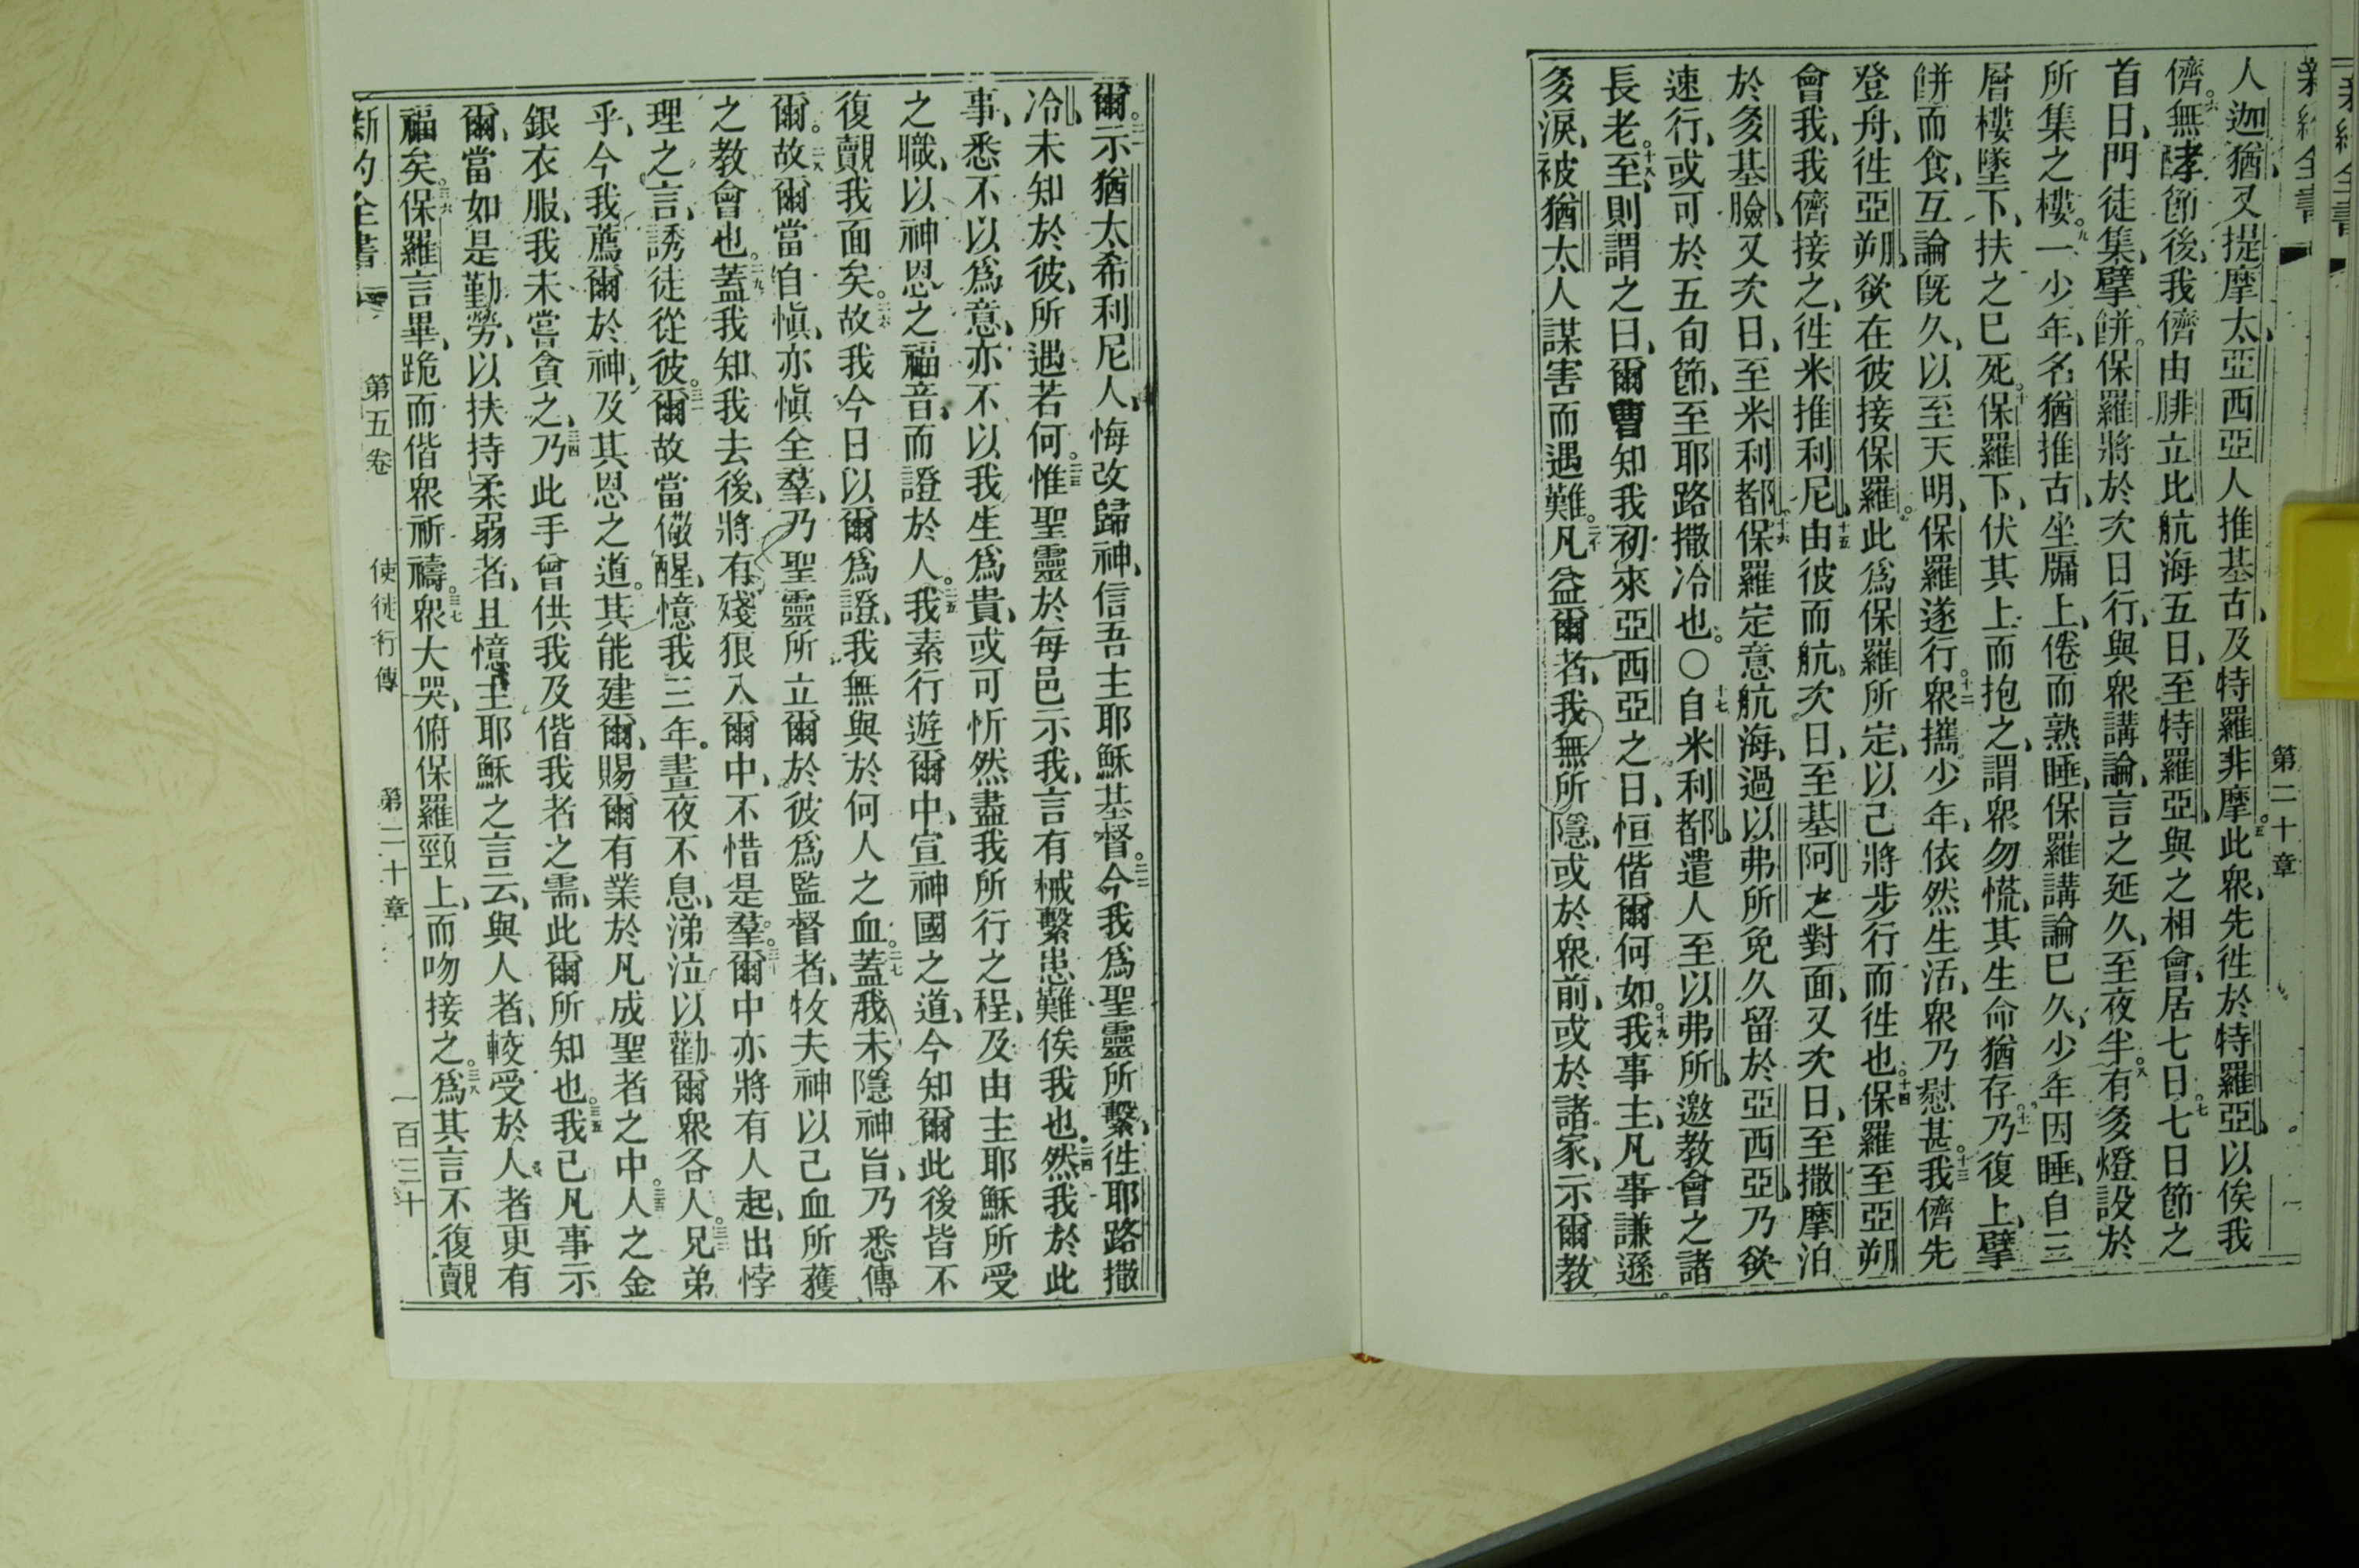 第二十章
人迦猶、又提摩太、亞西亞人推基古、及特羅非摩。五此衆先徃於特羅亞、以俟我
儕。六無酵節後、我儕由腓立比航海五日、至特羅亞、與之相會、居七日。七七日節之
首日、門徒集、擘餅。保羅將於次日行、與衆講論、言之延久、至夜半。八有多燈設於
所集之樓。九一少年、名猶推古、坐牖上、倦而熟睡、保羅講論已久、少年因睡、自三
層樓墜下、扶之已死。十保羅下、伏其上而抱之、謂衆勿慌、其生命猶存。十一乃復上、擘
餅而食、互論旣久、以至天明、保羅遂行。十二衆攜少年、依然生活、衆乃慰甚。十三我儕先
登舟、徃亞朔、欲在彼接保羅。此爲保羅所定、以己將步行而徃也。十四保羅至亞朔
會我、我儕接之、徃米推利尼。十五由彼而航、次日、至基阿之對面、又次日、至撒摩、泊
於多基臉、又次日、至米利都。十六保羅定意航海、過以弗所、免久留於亞西亞、乃欲
速行、或可於五旬節、至耶路撒冷也。○十七自米利都、遣人至以弗所、邀教會之諸
長老。十八至、則謂之曰、爾曹知我初來亞西亞之日、恒偕爾何如。十九我事主、凡事謙遜
多淚、被猶太人謀害而遇難。二十凡益爾者、我無所隱、或於衆前、或於諸家、示爾教
爾。二一示猶太希利尼人、悔改歸神、信吾主耶穌基督。二二今我爲聖靈所繫、徃耶路撒
冷、未知於彼、所遇若何。二三惟聖靈於每邑示我、言有械繫患難俟我也。二四然我於此
事、悉不以爲意、亦不以我生爲貴、或可忻然盡我所行之程、及由主耶穌所受
之職、以神恩之福音、而證於人。二五我素行遊爾中、宣神國之道、今知爾此後皆不
復覿我面矣。二六故我今日以爾爲證、我無與於何人之血。二七蓋我未隱神旨、乃悉傳
爾。二八故爾當自愼、亦愼全羣、乃聖靈所立爾於彼爲監督者、牧夫神以己血所獲
之教會也。二九蓋我知我去後、將有殘狼入爾中、不惜是羣。三十爾中亦將有人起、出悖
理之言、誘徒從彼。三一爾故當儆醒、憶我三年。晝夜不息、涕泣以勸爾衆各人。三二兄弟
乎、今我薦爾於神、及其恩之道。其能建爾、賜爾有業於凡成聖者之中。三三人之金
銀衣服、我未嘗貪之、三四乃此手曾供我及偕我者之需、此爾所知也。三五我已凡事示
爾、當如是勤勞、以扶持柔弱者、且憶主耶穌之言云、與人者、較受於人者更有
福矣。三六保羅言畢、跪而偕衆祈禱。三七衆大哭、俯保羅頸上、而吻接之。三八爲其言不復覿
新約全書 第五卷 使徒行傳 第二十章 一百三十